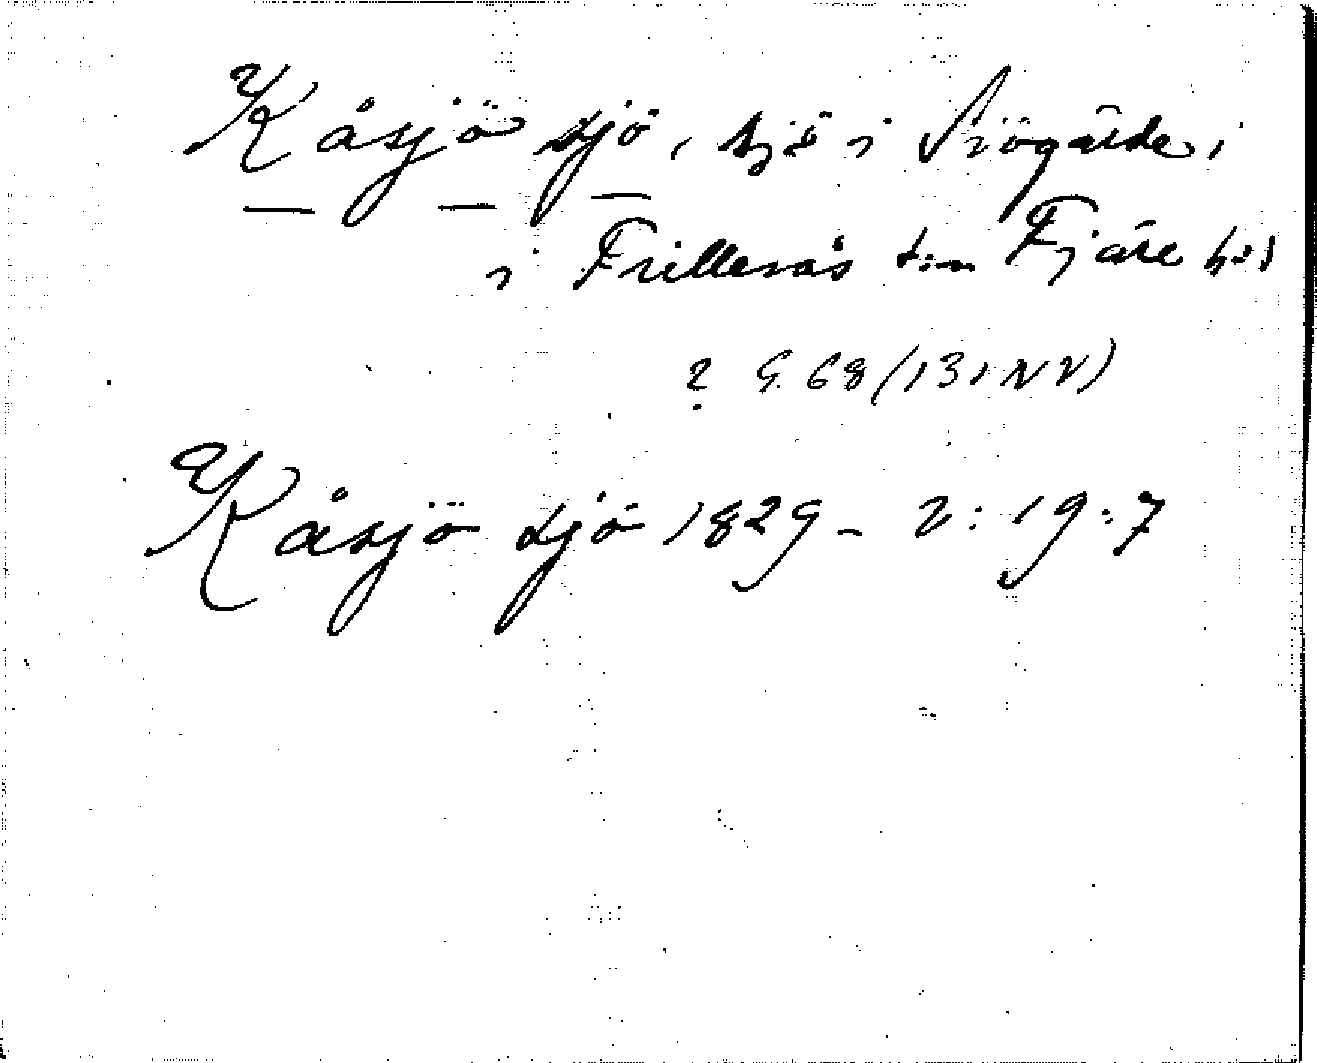 Kåsjö sjö, sjö i Sjögärde i
i Frillesås s:n Fjäre h:d
? G. 68 (131 NV)
Kåsjö sjö 1829 - 2:19:7